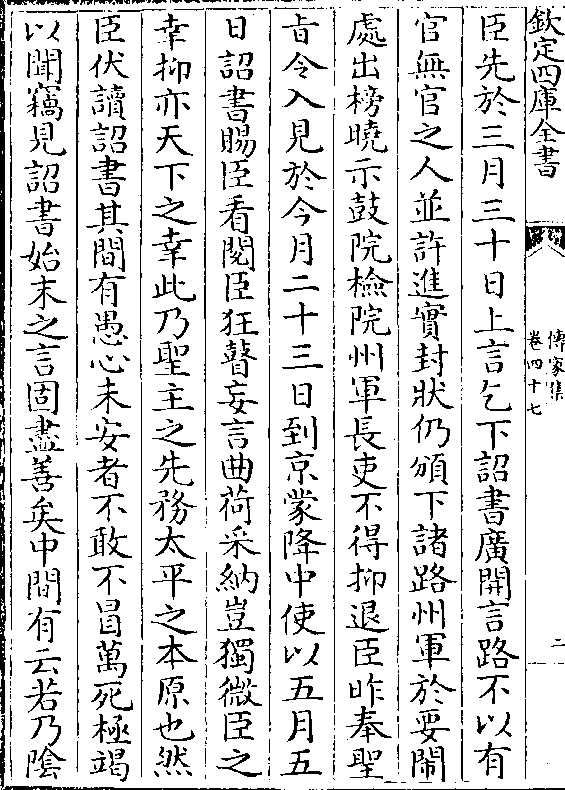 欽定四庫全書
傳家集
卷四十七
二
臣先於三月三十日上言乞下詔書廣開言路不以有
官無官之人並許進實封狀仍頒下諸路州軍於要鬧
處出榜曉示鼓院檢院州軍長吏不得抑退臣昨奉聖
旨令入見於今月二十三日到京蒙降中使以五月五
日詔書賜臣看閱臣狂瞽妄言曲荷采納豈獨微臣之
幸抑亦天下之幸此乃聖主之先務太平之本原也然
臣伏讀詔書其間有愚心未安者不敢不冒萬死極竭
以聞竊見詔書始末之言固盡善矣中間有云若乃隂